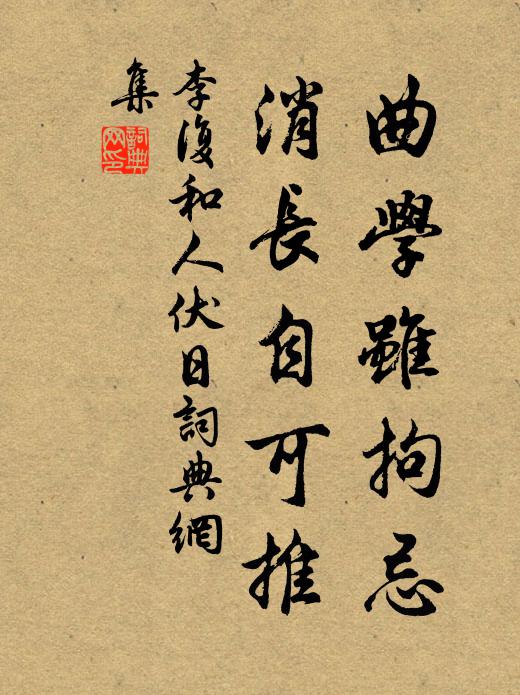 曲學雖拘忌
消長自可推
李復和人伏日詞典網
集
詞典網印